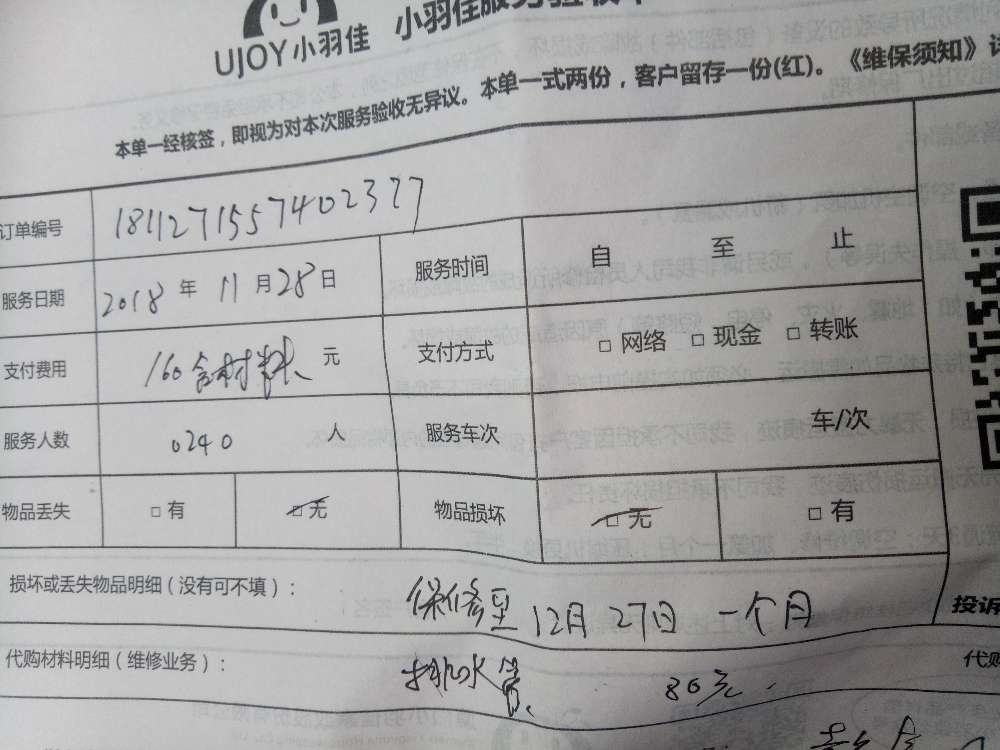 UJOY小羽佳 小羽佳服务验收单
本单一经核签，即视为对本次服务验收无异议。本单一式两份，客户留存一份(红)。《维保须知》
订单编号 18112715574402377
服务日期 2018 年 11 月 28 日 服务时间 自 至 止
支付费用 160含材料 元 支付方式 □ 网络 □ 现金 □ 转账
服务人数 0240 人 服务车次 车/次
物品丢失 □ 有 □ 无 物品损坏 □ 无 □ 有
损坏或丢失物品明细（没有可不填）： 保修至12月27日 一个月
投诉
代购材料明细（维修业务）： 排水管 80元 代购